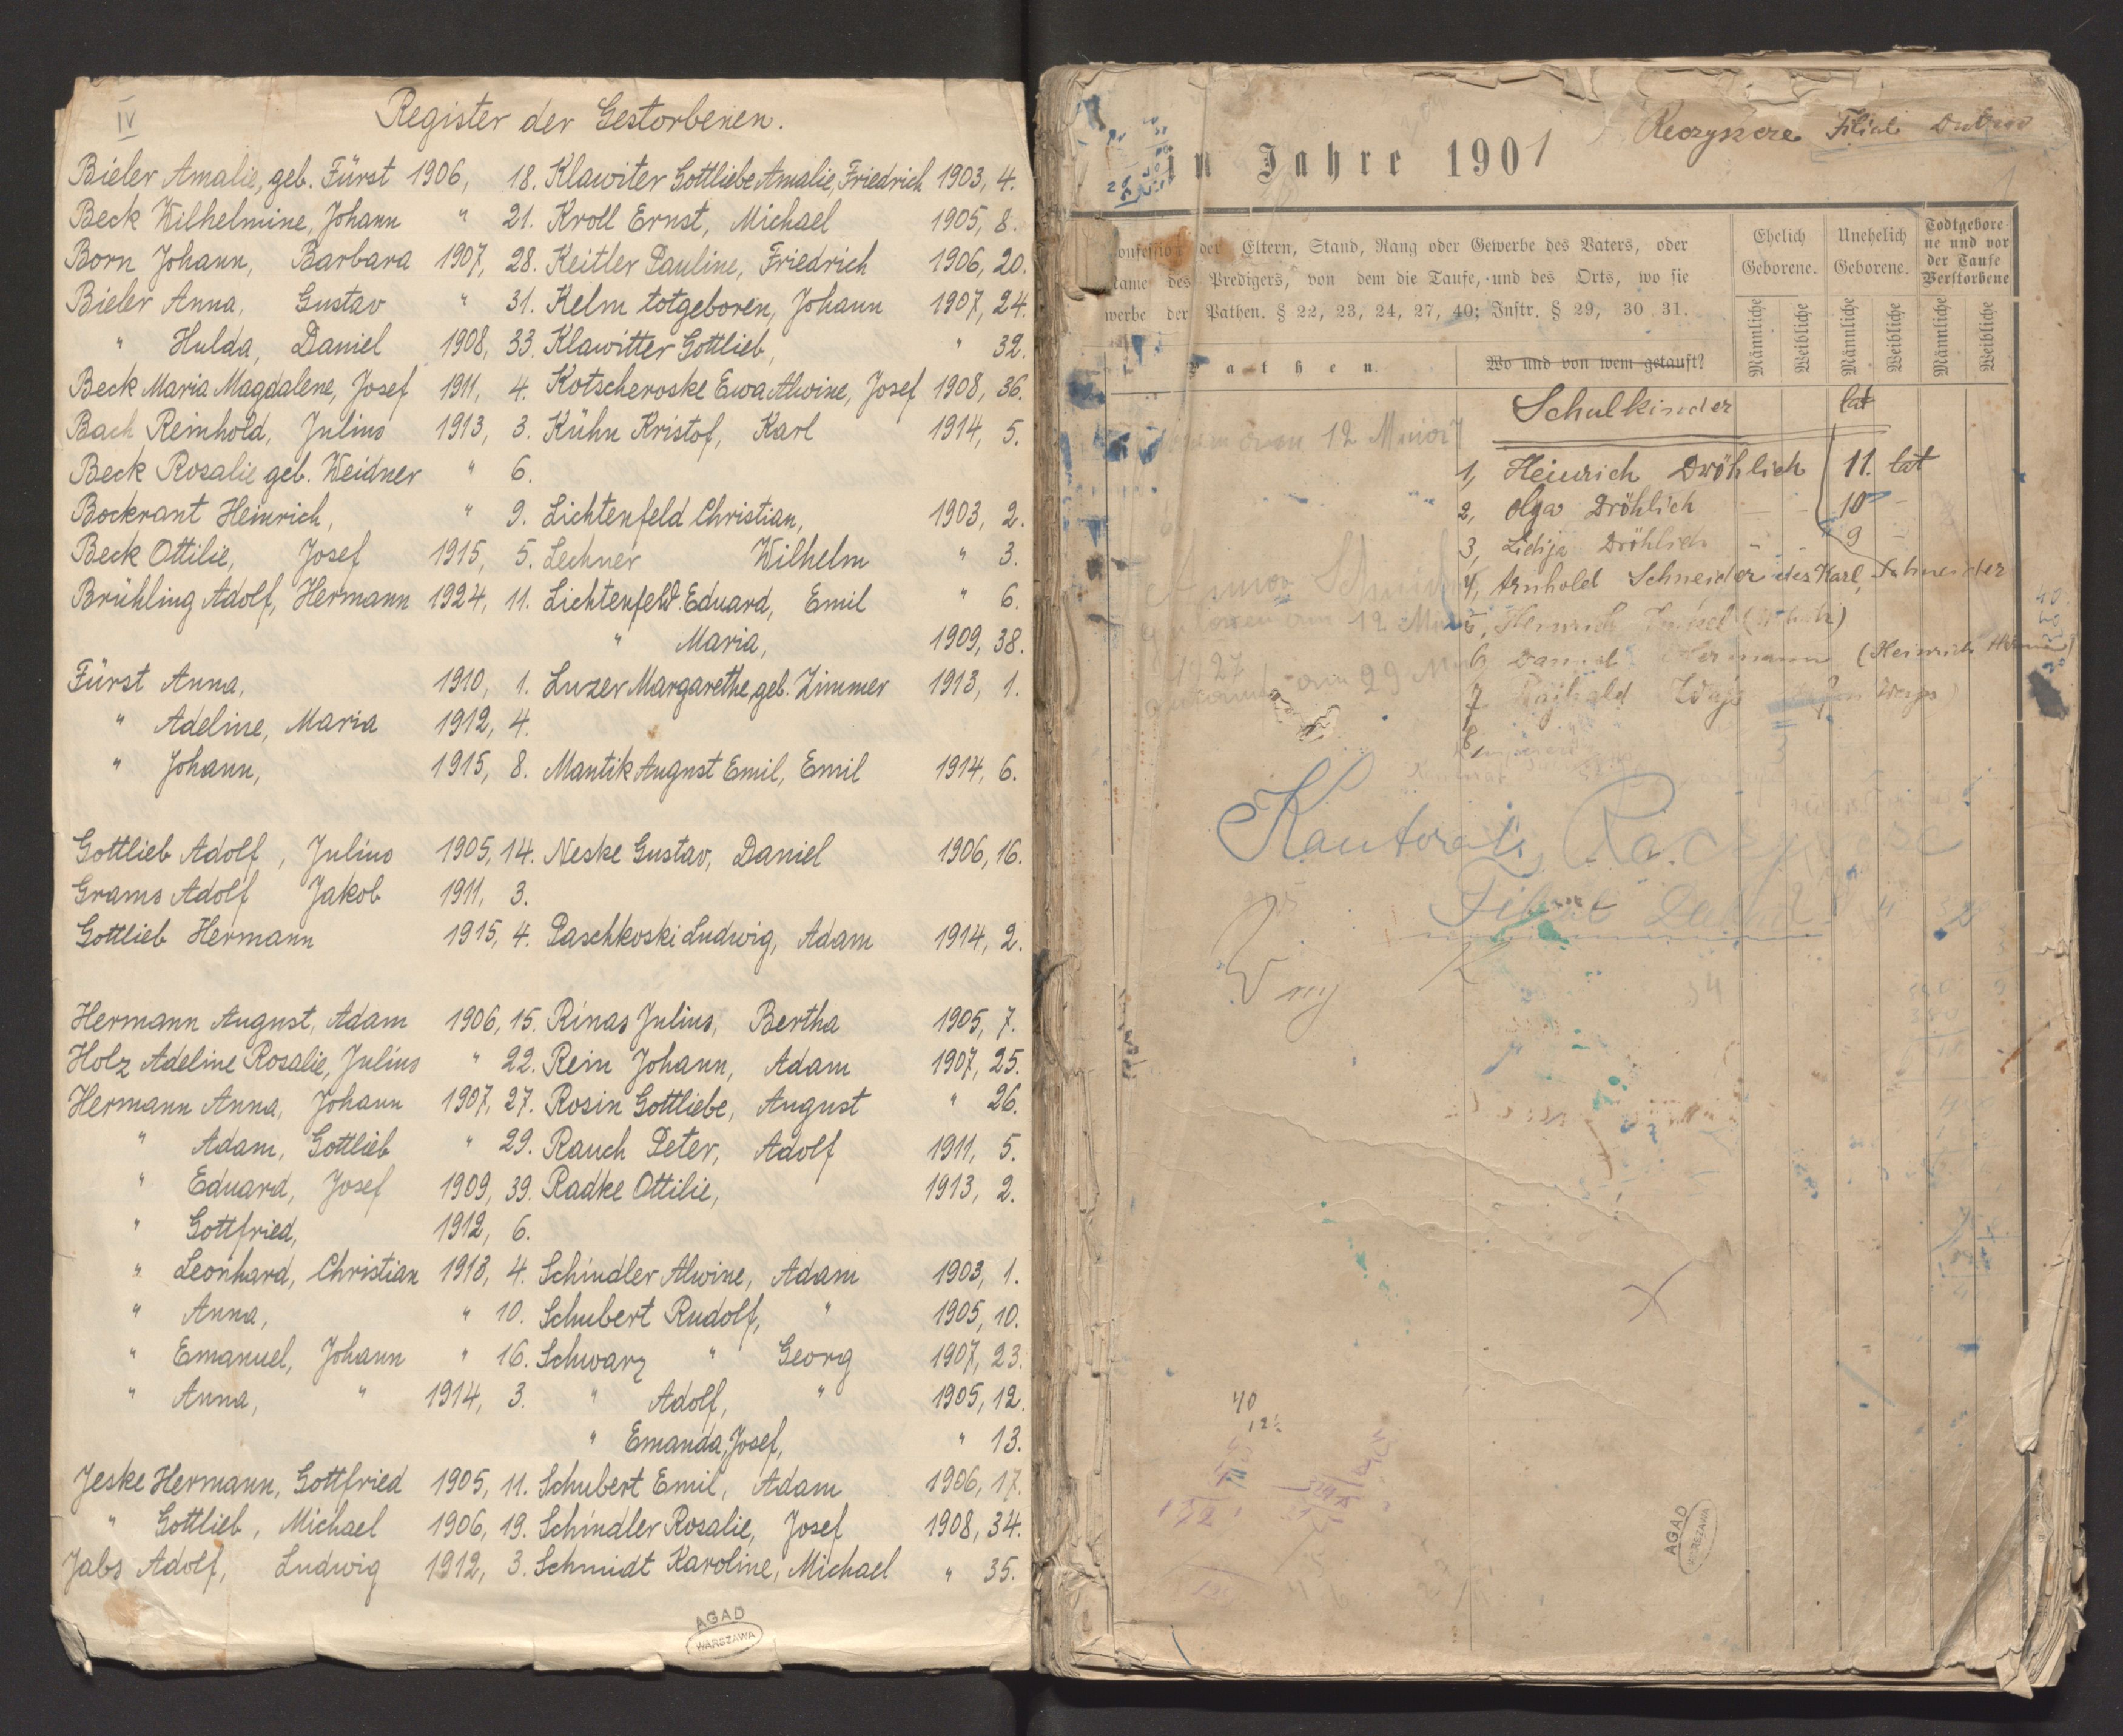 IV
Register der Gestorbenen.
Bieler Amalie, geb. Fürst 1906, 18.
Beck Wilhelmine, Johann " 21.
Born Johann, Barbara 1907, 28.
Bieler Anna, Gustav " 31.
" Hulda, Daniel 1908, 33.
Beck Maria Magdalene, Josef 1911, 4.
Bach Reinhold, Julius 1913, 3.
Beck Rosalie geb. Weidner " 6.
Bockrant Heinrich, " 9.
Beck Ottilie, Josef 1915, 5.
Brühling Adolf, Hermann 1924, 11.
Fürst Anna, 1910, 1.
" Adeline, Maria 1912, 4.
" Johann, 1915, 8.
Gottlieb Adolf, Julius 1905, 14.
Grams Adolf Jakob 1911, 3.
Gottlieb Hermann 1915, 4.
Hermann August, Adam 1906, 15.
Holz Adeline Rosalie, Julius " 22.
Hermann Anna, Johann 1907, 27.
" Adam, Gottlieb " 29.
" Eduard, Josef 1909, 39.
" Gottfried, 1912, 6.
" Leonhard, Christian 1913, 4.
" Anna, " 10.
" Emanuel, Johann " 16.
" Anna, " 1914, 3.
Jeske Hermann, Gottfried 1905, 11.
" Gottlieb, Michael 1906, 19.
Jabs Adolf, Ludwig 1912, 3.
Klawiter Gottliebe Amalie, Friedrich 1903, 4.
Kroll Ernst, Michael 1905, 8.
Keitler Pauline, Friedrich 1906, 20.
Kelm totgeboren, Johann 1907, 24.
Klawitter Gottlieb, " 32.
Kotscheroske Ewa Alwine, Josef 1908, 36.
Kühn Kristof, Karl 1914, 5.
Lichtenfeld Christian, 1903, 2.
Lechner Wilhelm " 3.
Lichtenfeld Eduard, Emil " 6.
" Maria, 1909, 38.
Luzer Margarethe, geb. Zimmer 1913, 1.
Mantik August Emil, Emil 1914, 6.
Neske Gustav, Daniel 1906, 16.
Paschkoski Ludwig, Adam 1914, 2.
Rinas Julius, Bertha 1905, 7.
Rein Johann, Adam 1907, 25.
Rosin Gottliebe, August " 26.
Rauch Peter, Adolf 1911, 5.
Radke Ottilie, 1913, 2.
Schindler Alwine, Adam 1903, 1.
Schubert Rudolf, " 1905, 10.
Schwarz " Georg 1907, 23.
" Adolf, " 1905, 12.
" Emanda, Josef, " 13.
Schubert Emil, Adam 1906, 17.
Schindler Rosalie, Josef 1908, 34.
Schmidt Karoline, Michael " 35.
AGAD
WARSZAWA
Filial
in Jahre 1901
Confession der Eltern, Stand, Rang oder Gewerbe des Vaters, oder
Name des Predigers, von dem die Taufe, und des Orts, wo sie
werbe der Pathen. § 22, 23, 24, 27, 40; Instr. § 29, 30 31.
Pathen.
Wo und von wem getauft?
Ehelich Geborene.
Unehelich Geborene.
Todtgebore-
ne und vor
der Taufe
Verstorbene
Männliche
Weibliche
Männliche
Weibliche
Männliche
Weibliche
Schulkinder lat
1, Heinrich Dröhlich 11. lat
2, Olga Dröhlich 10
3, Lidija Dröhlich 9
4, Arnhold Schneider des Karl, Schneider
5, Heinrich
6, Daniel Hermann (Heinrich
7
8
12
29
Kantorat
Filial
40
12
122
AGAD
WARSZAWA